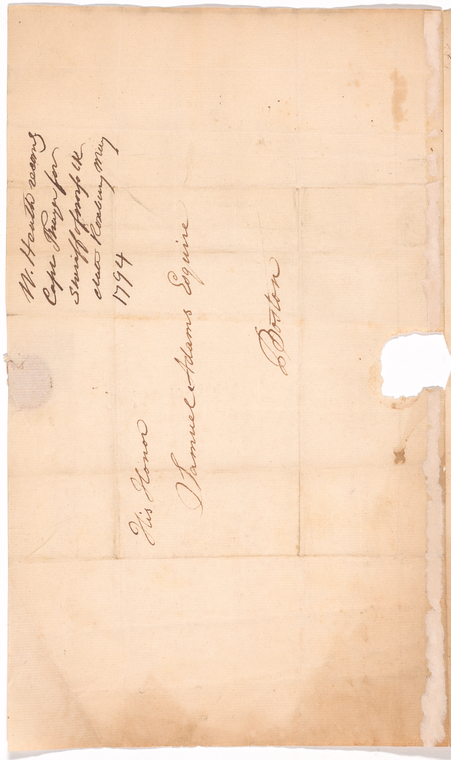 W. Heath recomg
Capt Thayer for
Sheriff of Norfolk
date Roxbury May
1794
His Honor
Samuel Adams Esquire
Boston